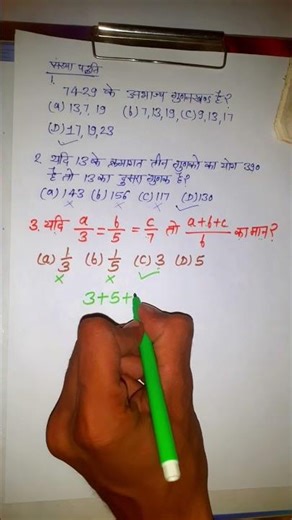 संख्या पद्धति
1.
7429 के अभाज्य गुणनखंड है?
(a) 13,7,19 (b) 7,13,19, (C) 9,13,17
(D) 17,19,23
2. यदि 13 के क्रमागत तीन गुणकों का योग 390
है तो 13 का दुसरा गुणक है?
(a) 143 (b) 156 (C) 117 (D) 130
3. यदि a/3 = b/5 = c/7 तो a+b+c/b का मान?
(a) 1/3 (b) 1/5 (C) 3 (D) 5
3+5+